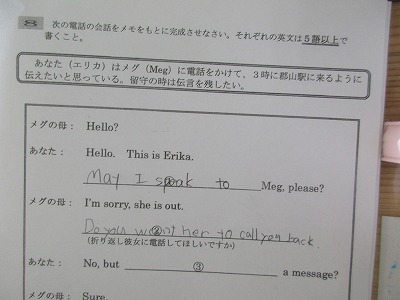 8 次の電話の会話をメモをもとに完成させなさい。それぞれの英文は5語以上で
書くこと。
あなた(エリカ)はメグ(Meg)に電話をかけて、3時に郡山駅に来るように
伝えたいと思っている。留守の時は伝言を残したい。
メグの母: Hello?
あなた: Hello. This is Erika.
May I speak to Meg, please?
メグの母: I'm sorry, she is out.
Do you want her to call you back.
②
(折り返し彼女に電話してほしいですか)
あなた: No, but ③ a message?
メグの母: Sure.